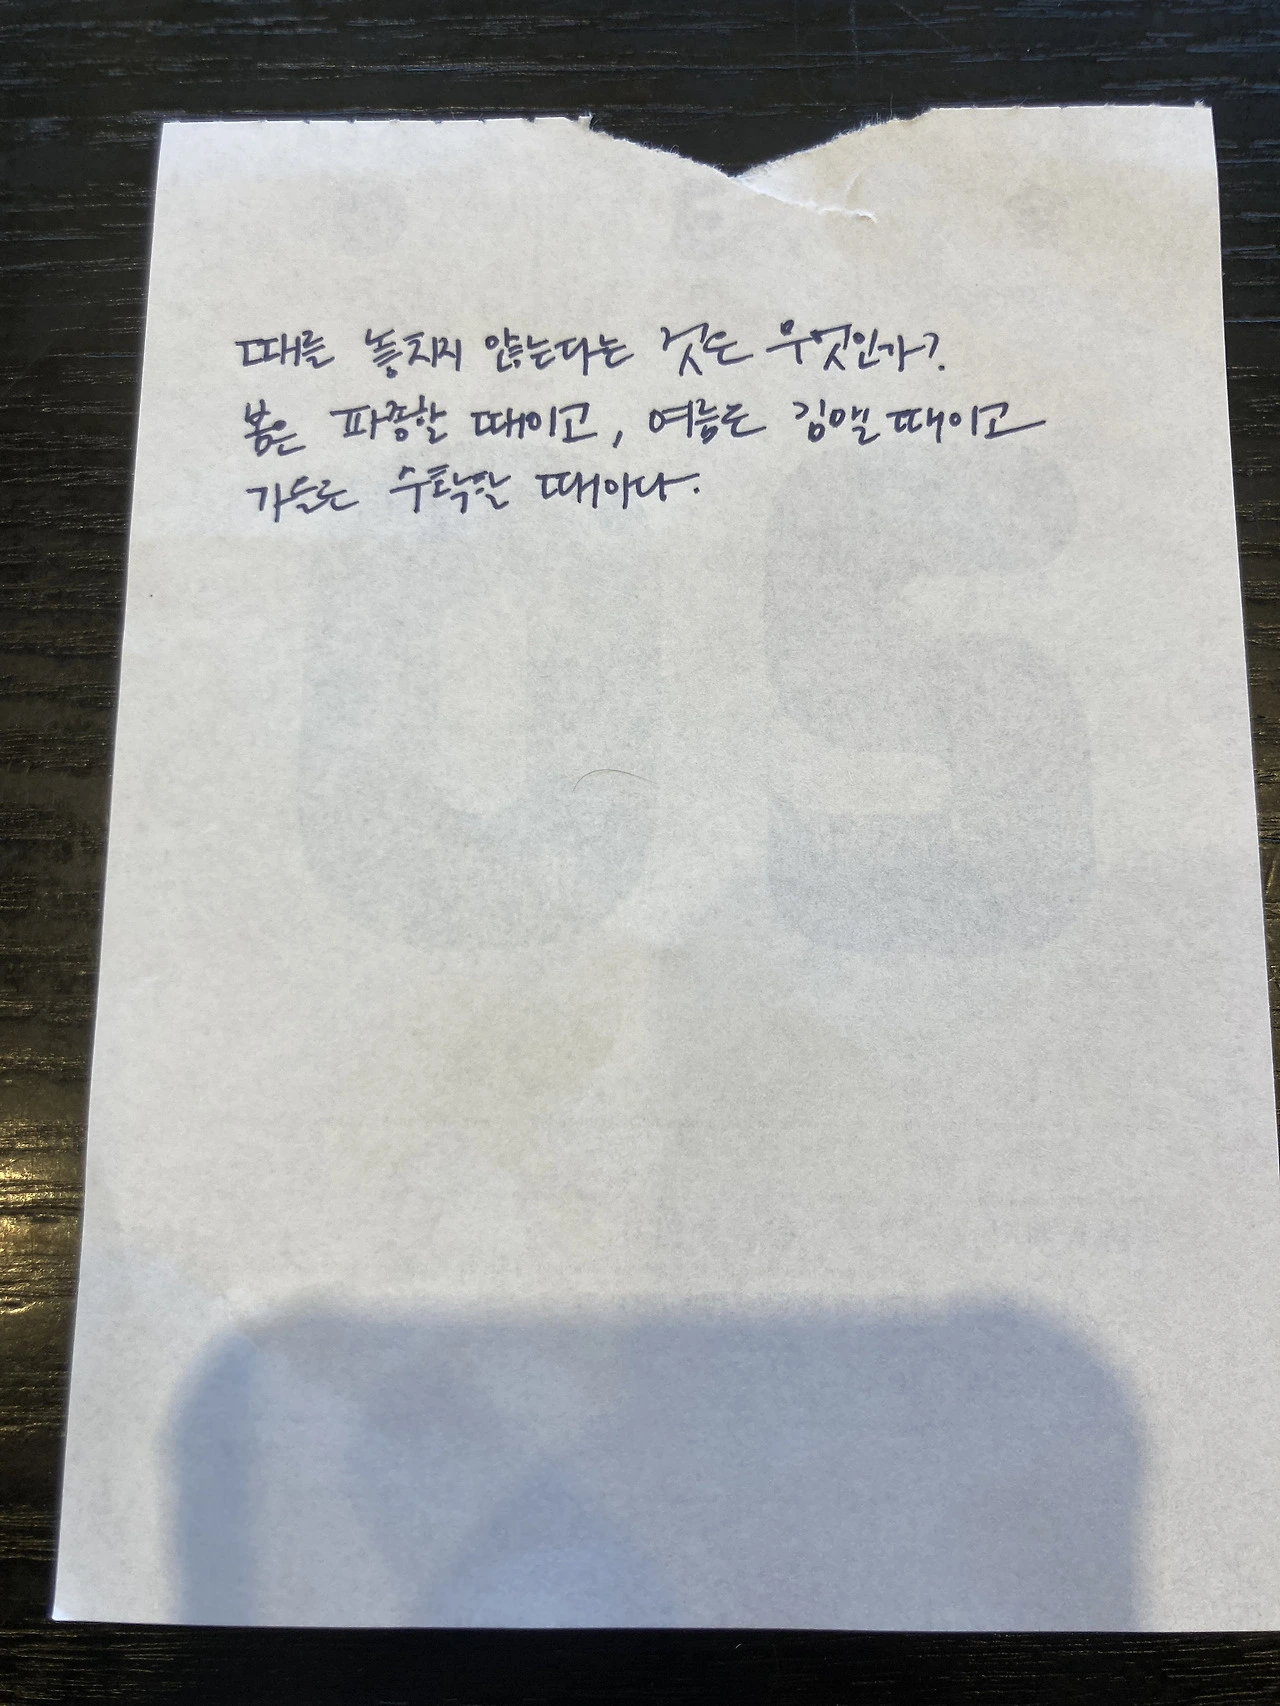 때를 놓치지 않는다는 것은 무엇인가?
봄은 파종할 때이고, 여름은 김맬 때이고
가을은 수확할 때이다.